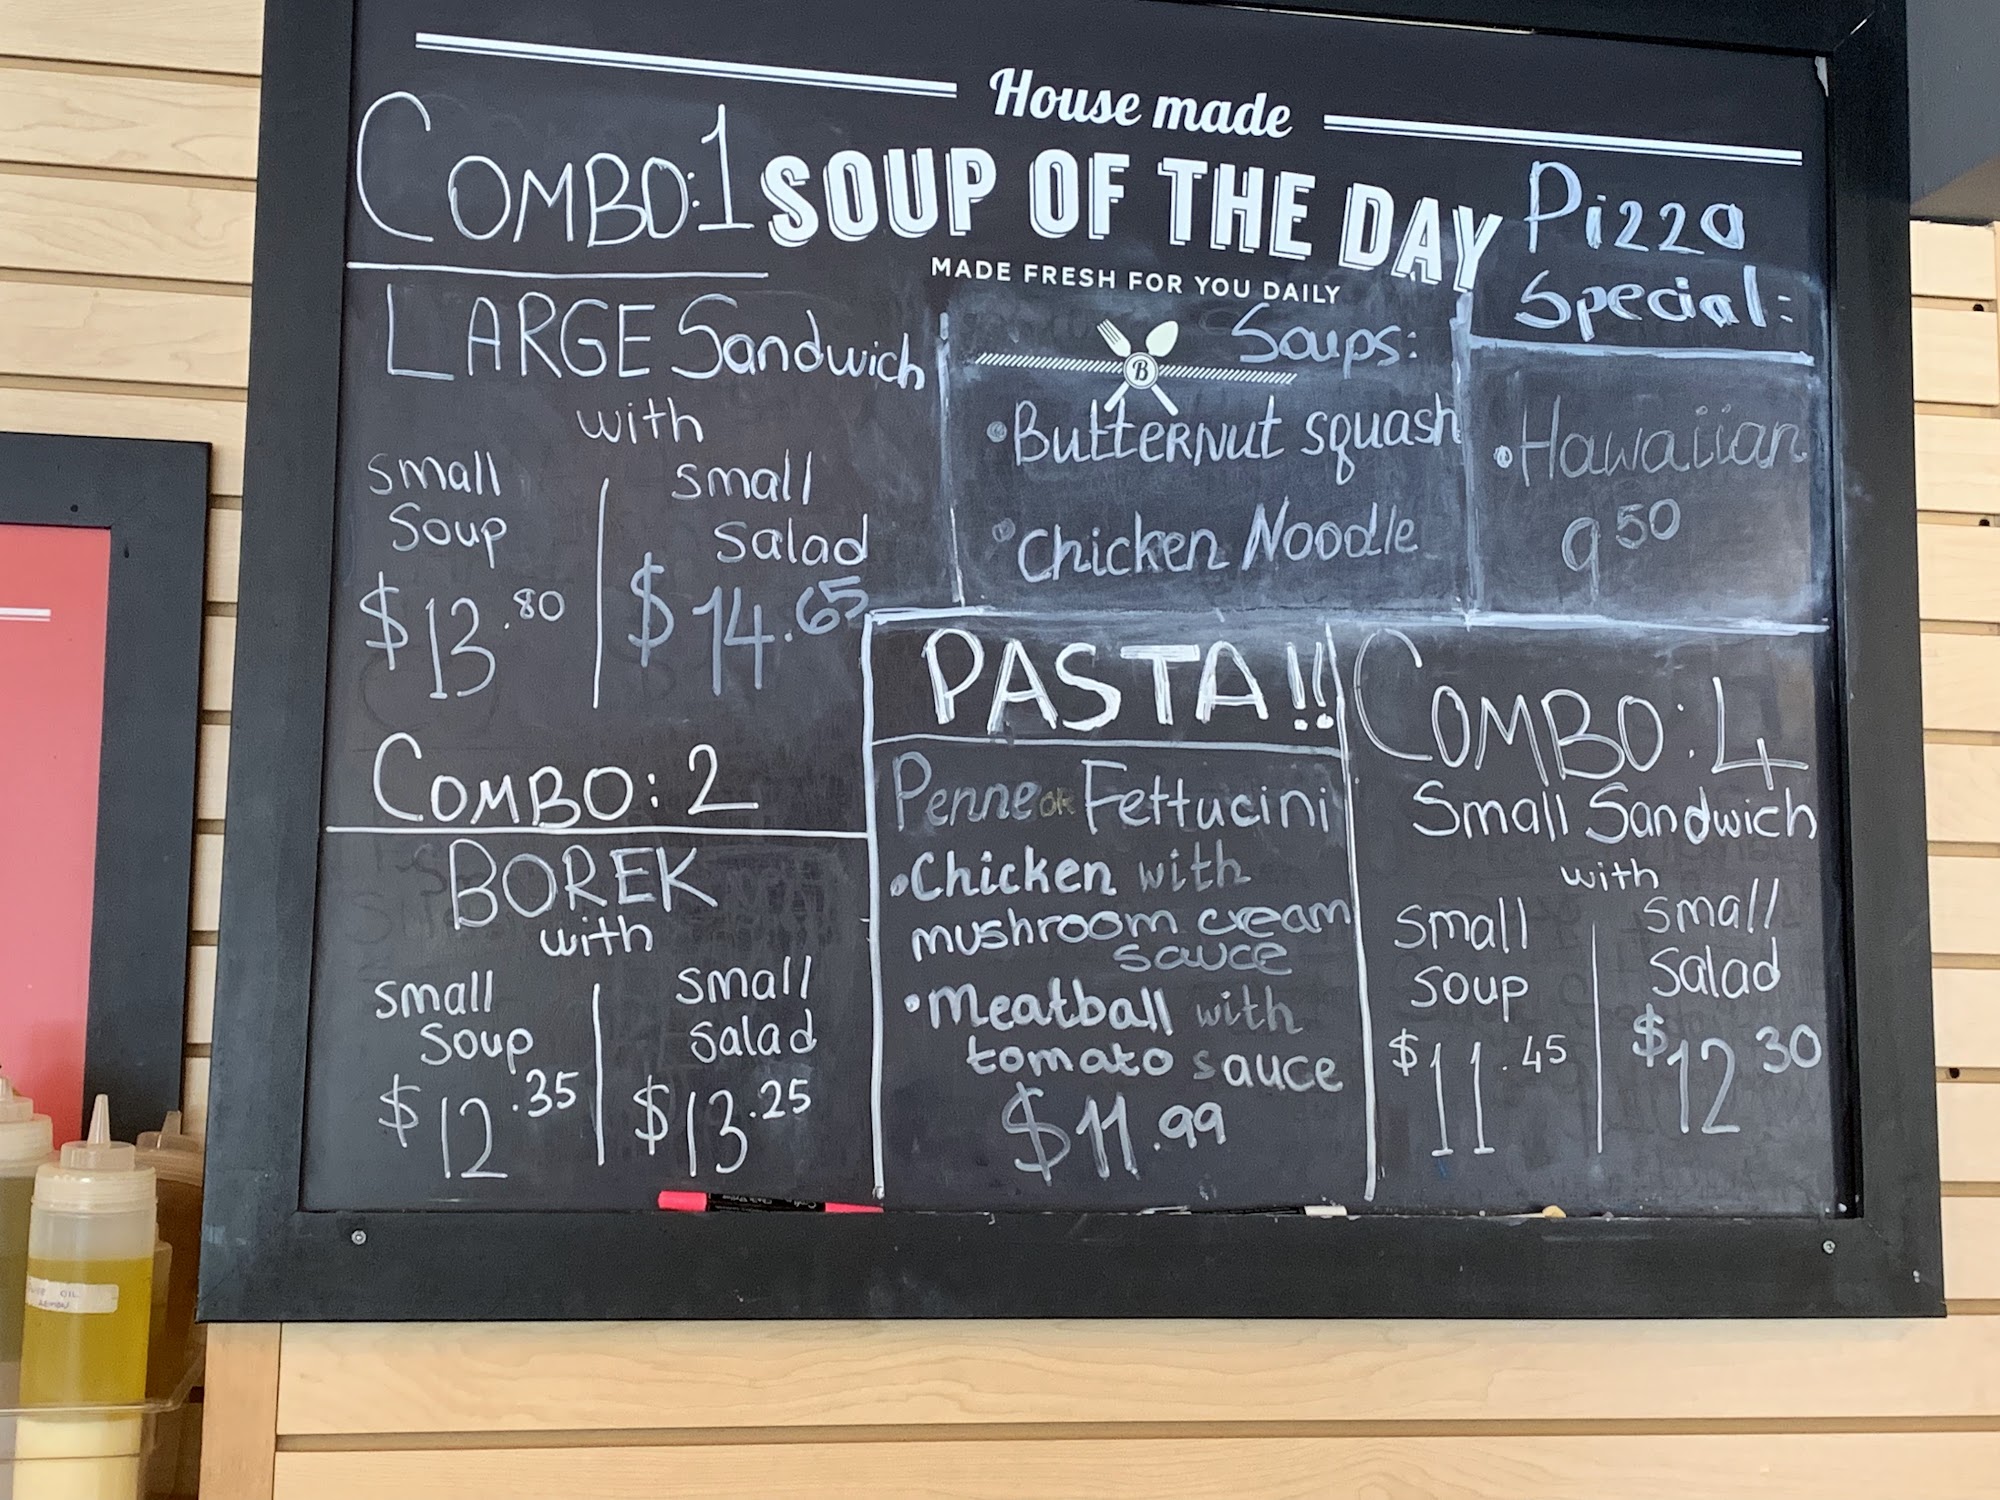 House made
SOUP OF THE DAY
MADE FRESH FOR YOU DAILY
COMBO:1
LARGE Sandwich
with
small
Soup
$13.80
small
salad
$14.65
COMBO:2
BOREK
with
small
Soup
$12.35
small
salad
$13.25
Soups:
B
•Butternut squash
•Chicken Noodle
Pizza
Special:
•Hawaiian
9 50
PASTA!!
Penne OR Fettucini
•Chicken with
mushroom cream
sauce
•Meatball with
tomato sauce
$11.99
COMBO:4
Small Sandwich
with
small
soup
$11.45
small
salad
$12 30
OIL
LEMON